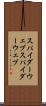 スパイダーウ
ェブスパイダ
ーウェブ